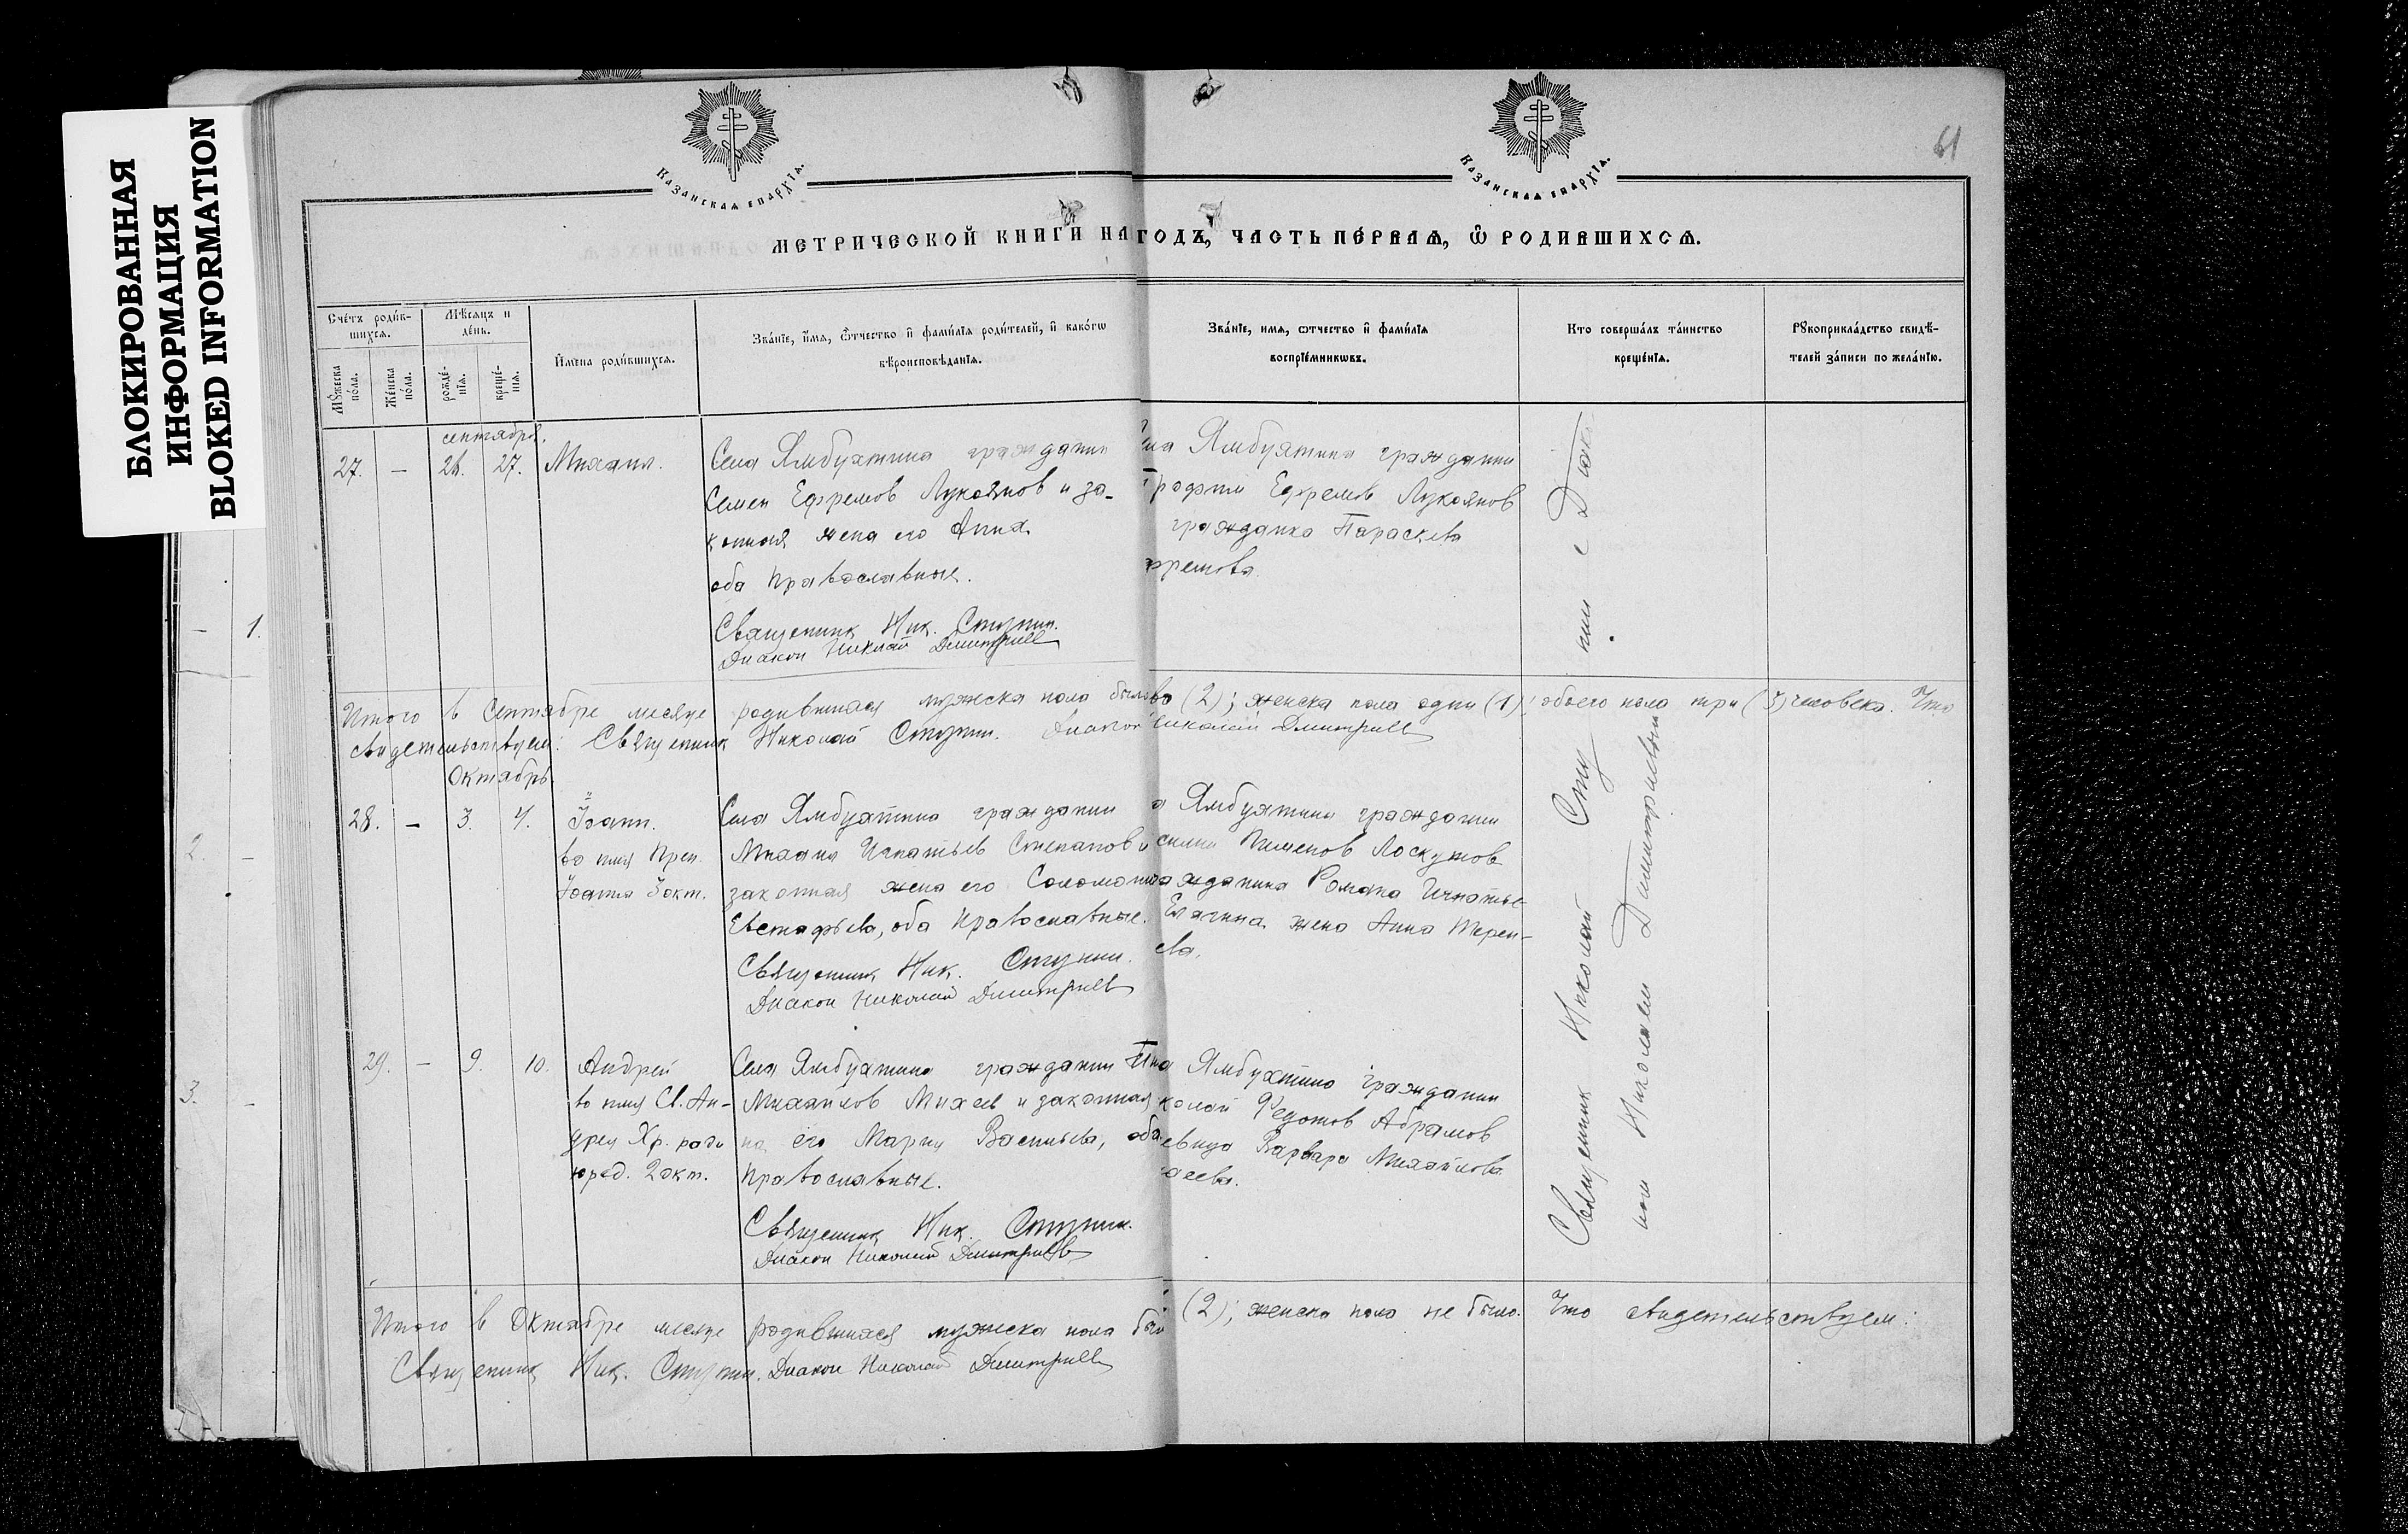 БЛОКИРОВАННАЯ
ИНФОРМАЦИЯ
BLOKED INFORMATION
1.
2.
3.
Казанская епархїа.
Казанская епархїа.
61
МЕТРИЧЕСКОЙ КНИГИ НА ГОДЪ, ЧАСТЬ ПЕ́РВАѦ, Ѡ РОДИВШИХСѦ.
Сче́тъ роди́вшихсѧ.
Мꙋ́жеска по́ла.
Же́нска по́ла.
Мѣ́сѧцъ и де́нь.
рожде́нїѧ.
креще́нїѧ.
И҆мена роди́вшихсѧ.
Зва́нїе, и҆́мѧ, ѻ҆́тчество и҆ фами́лїѧ роди́телей, и҆ како́гѡ
вѣроисповѣ́данїѧ.
Зва́нїе, имѧ, ѡтчество и҆ фами́лїѧ
воспрїе́мникѡвъ.
Кто соверша́лъ та́инство
креще́нїѧ.
Рꙋкоприкла́дство свидѣ́-
телей за́писи по жела́нїю.
сентября.
27. – 26. 27. Михаил.
Села Ямбухтина гражданин
Семен Ефремов Лукоянов и за-
конная жена его Анна
оба православные.
Священник Ник. Ступин.
Диакон Николай Дмитриев
Села Ямбухтина гражданин
Трофим Ефремов Лукоянов
гражданка Параскева
фремова.
Итого в Сентябре месяце родившихся мужска пола было (2); женска пола один (1); обоего пола три (3) человека. Что
свидетельствуем: Священник Николай Ступин. Диакон Николай Дмитриев
Октябрь.
28. – 3. 4. Иоанн.
во имя Преп.
Иоанна 3 окт.
Села Ямбухтина гражданин
Михаил Игнатьев Степанов и
законная жена его Соломония
Евстафьева, оба православные.
Священник Ник. Ступин.
Диакон Николай Дмитриев
а Ямбухтина гражданин
силий Пименов Лоскутов
ажданина Романа Игнатье
Елагина жена Анна Терен-
ева.
29. – 9. 10. Андрей
во имя Св. Ан-
дрея Хр. ради
юрод. 2 окт.
Села Ямбухтина гражданин
Михаилов Михеев и законная
на его Мария Васильева, оба
православные.
Священник Ник. Ступин.
Диакон Николай Дмитриев
а Ямбухтина гражданин
колай Федотов Абрамов
евица Варвара Михайлова
хеева.
Священник Николай Ступин с Диако
ном Николаем Димитриевым
Итого в Октябре месяце родившихся мужска пола было (2); женска пола не было. Что свидетельствуем:
Священник Ник. Ступин. Диакон Николай Дмитриев